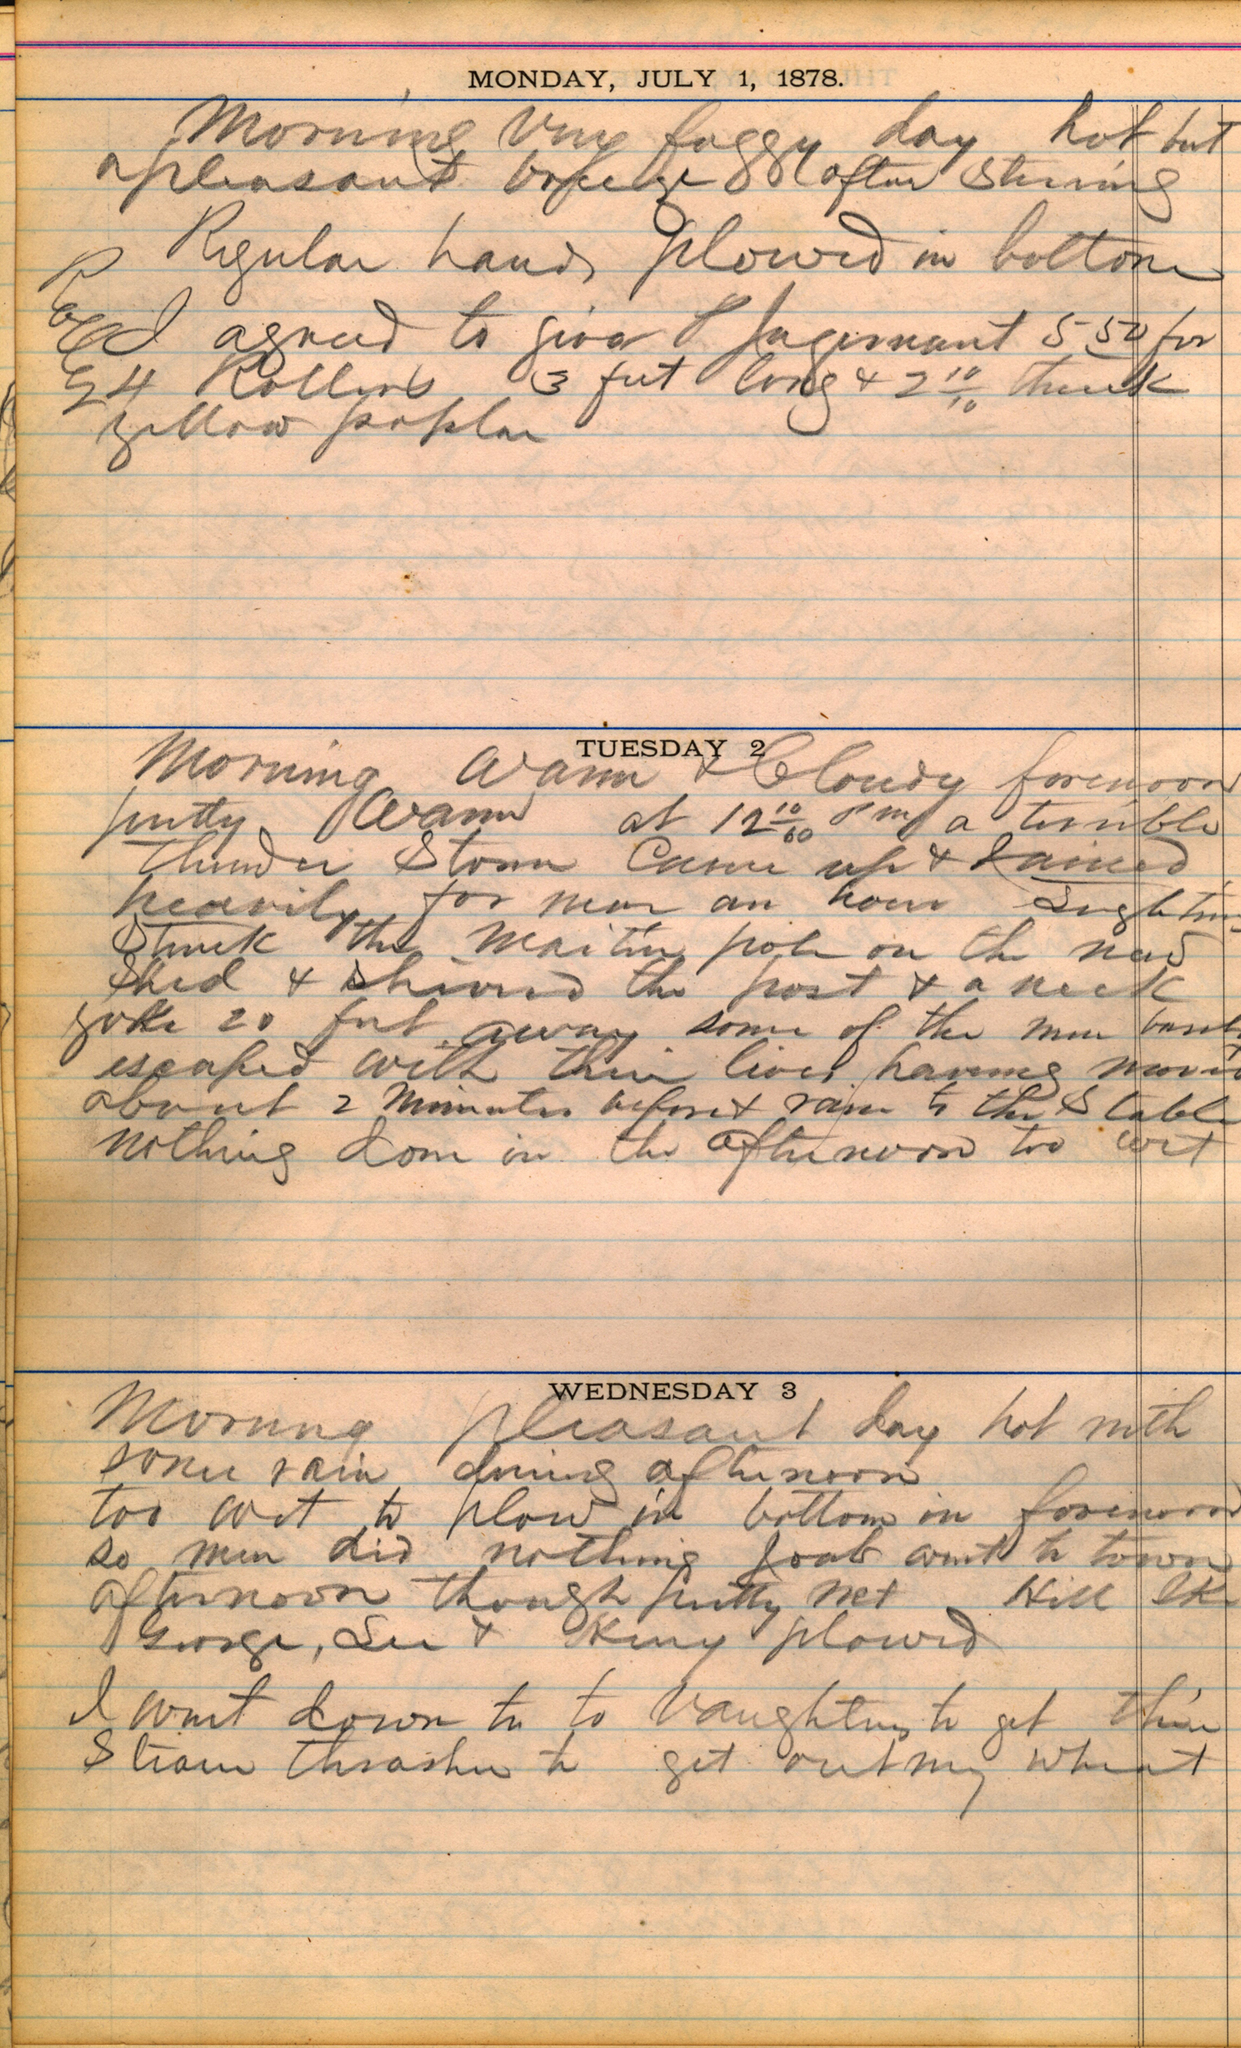 MONDAY, JULY 1, 1878.
Morning very foggy day hot but
a pleasant breeze after
Regular hands plowed in bottom
I agreed to give 5 50 for
4 Rollers 3 feet long & 2 10/10 thick
yellow poplar
TUESDAY 2
Morning Warm & Cloudy forenoon
pretty Warm at 12 10/60 Pm a terrible
thunder Storm Came up & rained
heavily for near an hour Lightning
Struck the Martin pole on the new
Shed & shivered the post & a neck
yoke 20 feet away some of the men barely
escaped with their lives having moved
about 2 Minutes before & ran to the Stable
nothing done in the afternoon too wet
WEDNESDAY 3
Morning pleasant day hot with
some rain during afternoon
too wet to plow in bottom in forenoon
so men did nothing went to town
afternoon though pretty wet Hill Ike
George, Lee & King plowed
I went down to to Vaughters to get their
Steam thrasher to get out my wheat